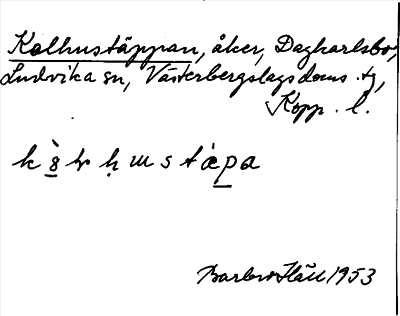 Kolhustäppan, åker, Dagkarlsbo,
Ludvika sn, Västerbergslags doms. tg,
Kopp. l.
Barbro Häll 1953